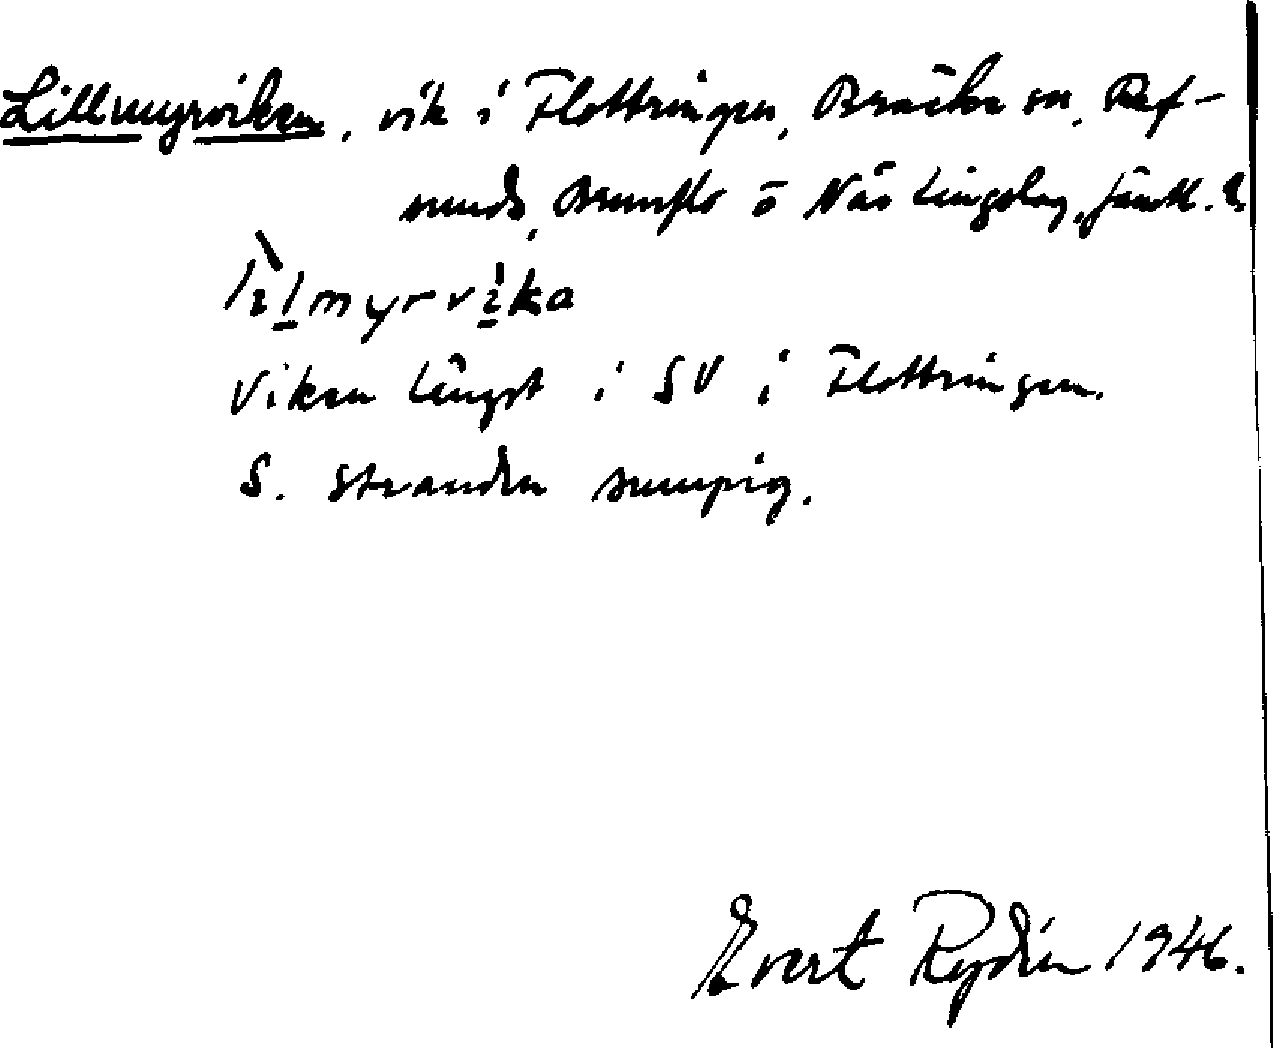 Lillmyrviken, vik i Flottringen, Bräcke sn. Ref-
sunds, Brunflo o Näs tingslag, Jämtl. l.
lilmyrvika
Viken längst i SV i Flottringen.
S. stranden sumpig.
Evert Rydén 1946.